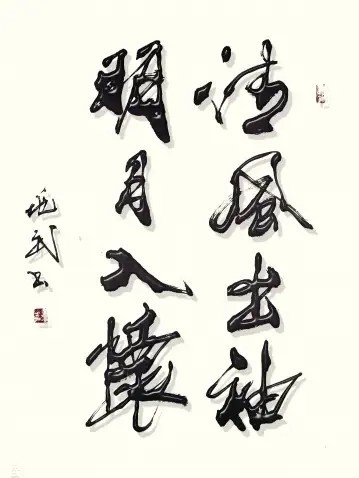 清风出袖
明月入懷